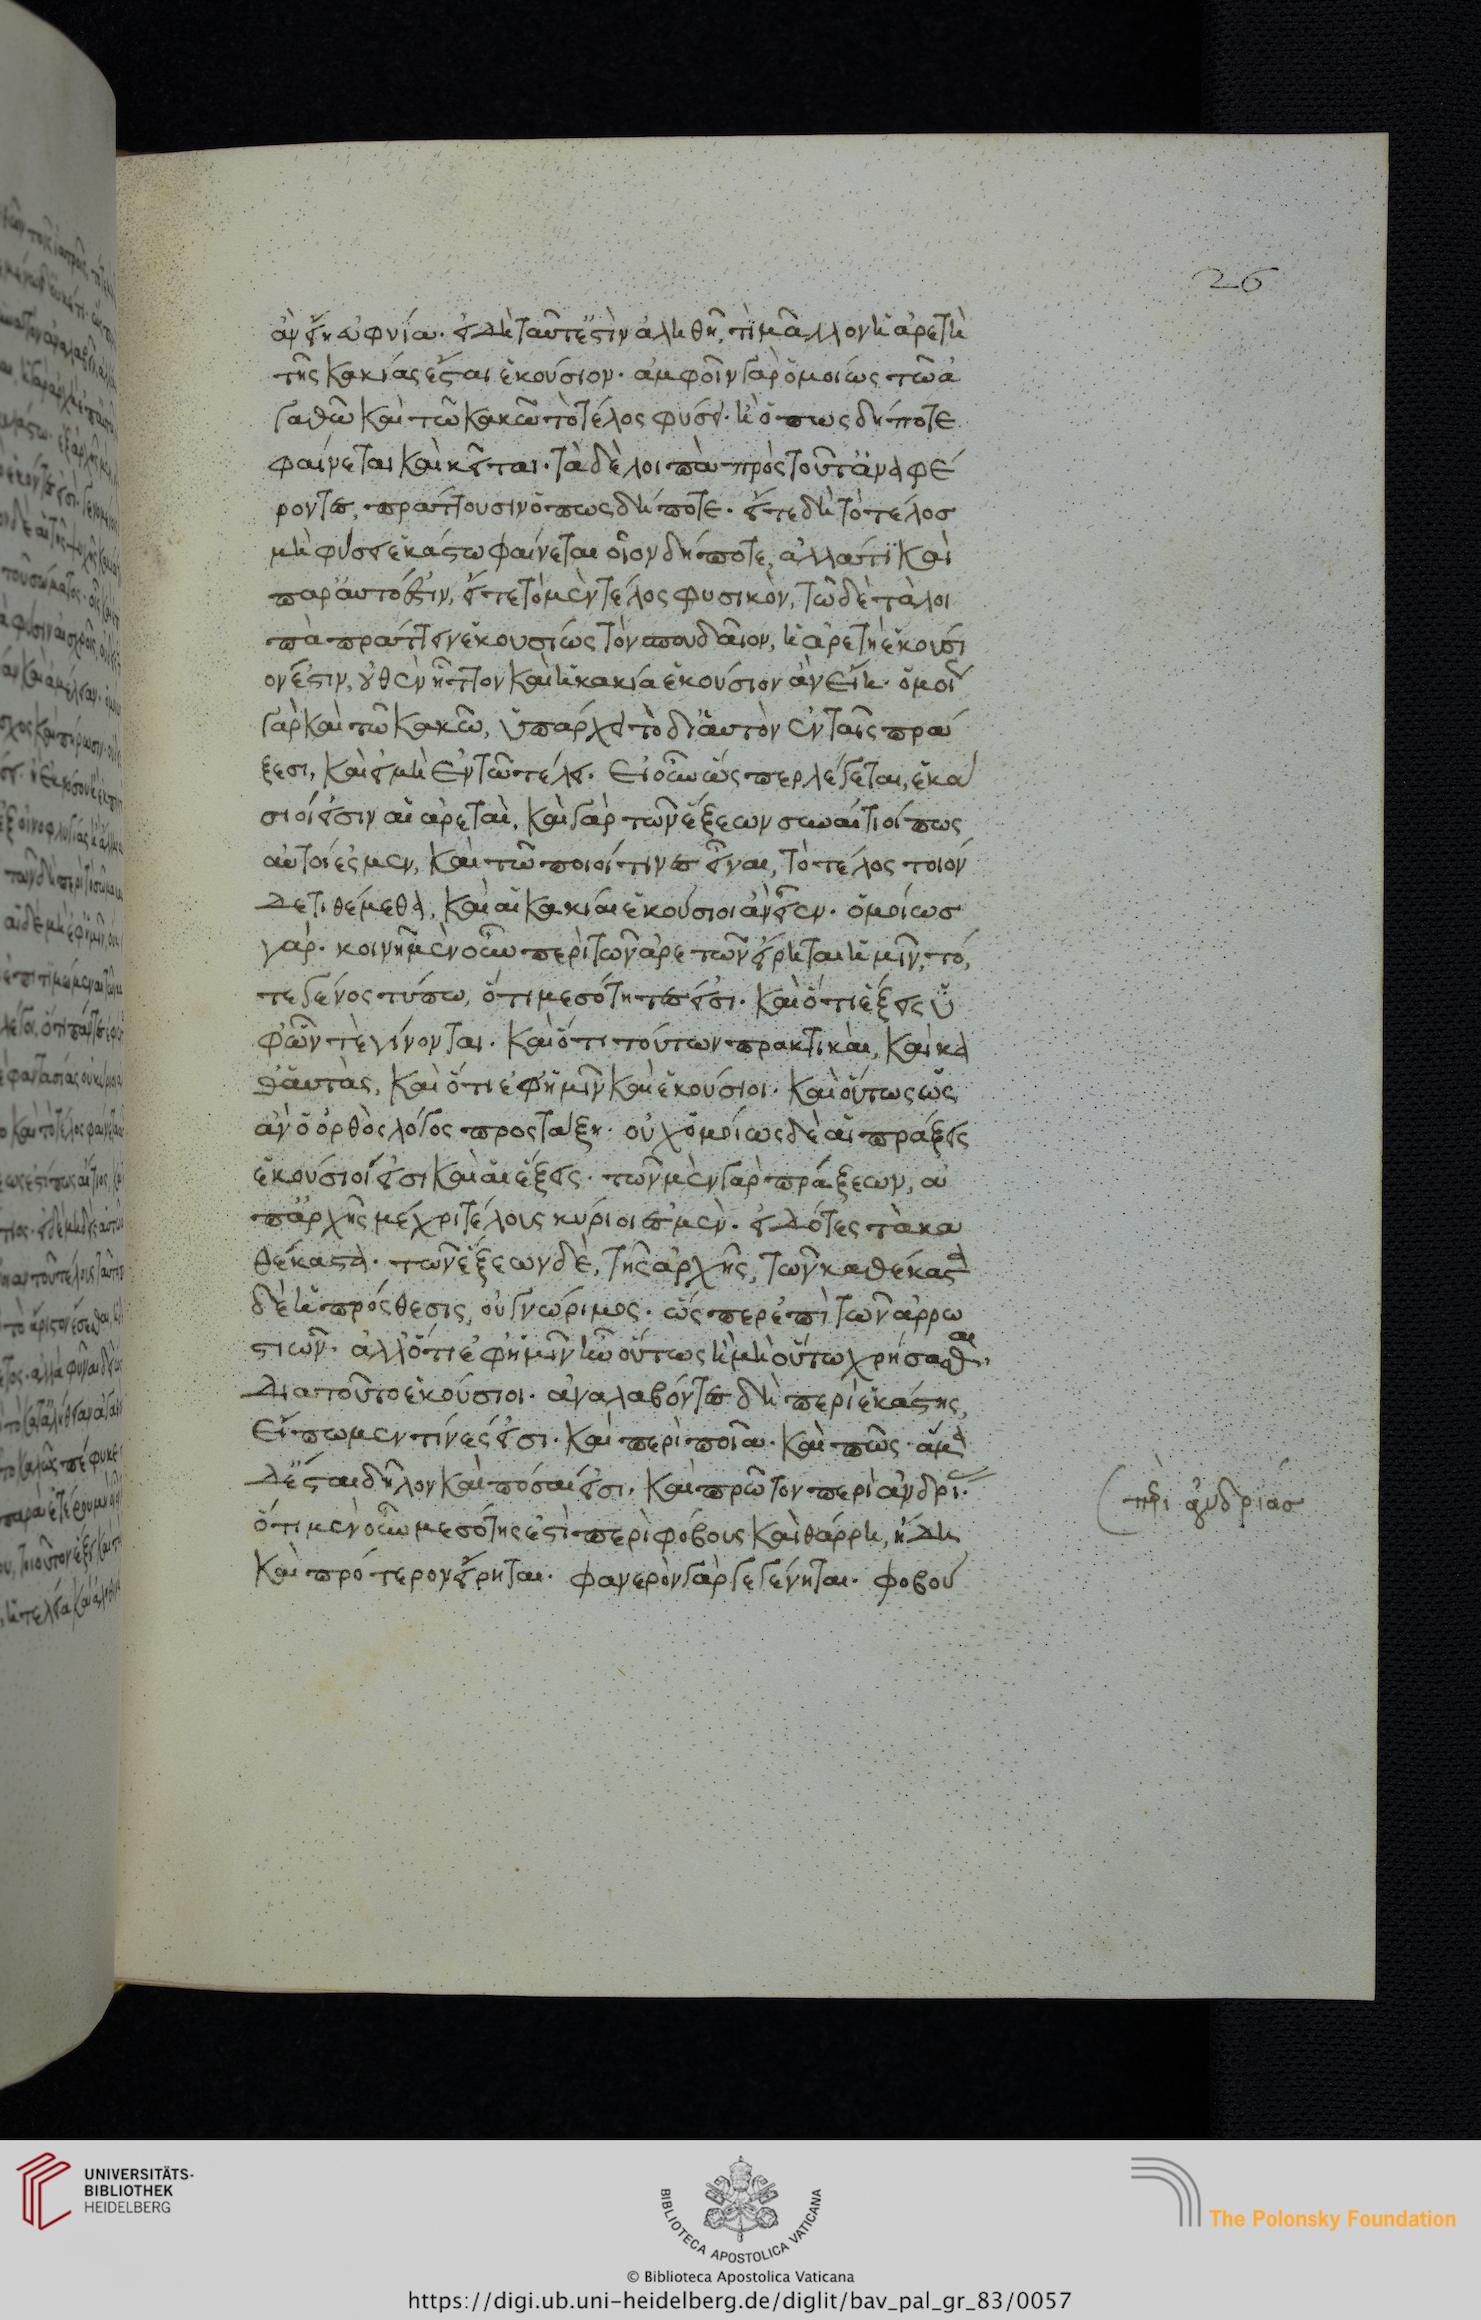 26
ἂν εἴη εὐφυΐα. εἰ δὴ ταῦτ' ἐστὶν ἀληθῆ, τί μᾶλλον ἡ ἀρετὴ
τῆς κακίας ἔσται ἑκούσιον. ἀμφοῖν γὰρ ὁμοίως τῶ ἀ
γαθῶ καὶ τῶ κακῶ τὸ τέλος φύσει. ἢ ὁπως δήποτε
φαίνεται καὶ κεῖται. τὰ δὲ λοιπὰ πρὸς τοῦτ' ἀναφέ
ροντες, πράττουσιν ὅπως δήποτε. εἴτε δὴ τὸ τέλοσ
μὴ φύσει ἑκάστω φαίνεται οἷον δήποτε, ἀλλά τι καὶ
παρ' αὐτόν ἐστιν, εἴτε τὸ μὲν τέλος φυσικὸν, τῶ δὲ τὰ λοι
πὰ πράττειν ἑκουσίως τὸν σπουδαῖον, ἡ ἀρετὴ ἑκούσι
ον ἐστιν, οὐθὲν ἧττον καὶ ἡ κακία ἑκούσιον ἂν εἴη. ὁμοί
γὰρ καὶ τῶ κακῶ, ὑπάρχει τὸ δι' αὑτὸν ἐν ταῖς πρά
ξεσι, καὶ εἰ μὴ ἐν τῶ τέλει. εἰ οὖν ὥσπερ λέγεται, ἑκού
σιοί εἰσιν αἱ ἀρεταὶ, καὶ γὰρ τῶν ἕξεων συναίτιοί πως
αὐτοί ἐσμεν, καὶ τῶ ποιοί τινες εἶναι, τὸ τέλος τοιόν
δε τιθέμεθα, καὶ αἱ κακίαι ἑκούσιοι ἂν εἶεν. ὁμοίωσ
γάρ. κοινῆ μὲν οὖν περὶ τῶν ἀρετῶν εἴρηται ἡμῖν, τό,
τε γένος τύπω, ὅτι μεσότητές εἰσι. καὶ ὅτι ἕξεις ὑ
φ' ὧν τε γίνονται. καὶ ὅτι τούτων πρακτικαὶ, καὶ κα
θ' αὑτὰς, καὶ ὅτι ἐφ' ἡμῖν καὶ ἑκούσιοι. καὶ οὕτως ὡς
ἂν ὁ ὀρθὸς λόγος προστάξη. οὐχ ὁμοίως δὲ αἱ πράξεις
ἑκούσιοί εἰσι καὶ αἱ ἕξεις. τῶν μὲν γὰρ πράξεων, ἀ
π' ἀρχῆς μέχρι τέλους κύριοι ἐσμὲν. εἰδότες τὰ κα
θέκαστα. τῶν ἕξεων δὲ, τῆς ἀρχῆς, τῶν καθέκαστα
δὲ ἡ πρόσθεσις, οὐ γνώριμος. ὥσπερ ἐπὶ τῶν ἀρρω
στιῶν. ἀλλ' ὅτι ἐφ' ἡμῖν ἦν οὕτως ἢ μὴ οὕτω χρήσασθαι,
διὰ τοῦτο ἑκούσιοι. ἀναλαβόντες δὴ περὶ ἑκάστης,
εἴπωμεν τίνές εἰσι. καὶ περὶ ποῖα. καὶ πῶς. ἅμα
δ' ἔσται δῆλον καὶ πόσαι εἰσι. καὶ πρῶτον περὶ ἀνδρί.
ὅτι μὲν οὖν μεσότης ἐστὶ περὶ φόβους καὶ θάρρη, ἤδη
καὶ πρότερον εἴρηται. φανερὸν γὰρ γεγένηται. φοβού
περὶ ἀνδρίασ
UNIVERSITÄTS-
BIBLIOTHEK
HEIDELBERG
BIBLIOTECA APOSTOLICA VATICANA
The Polonsky Foundation
© Biblioteca Apostolica Vaticana
https://digi.ub.uni-heidelberg.de/diglit/bav_pal_gr_83/0057